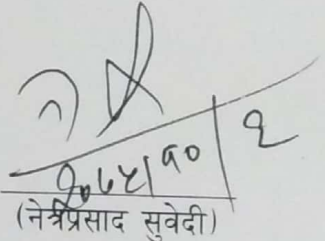 २०७५/१०/२
(नेत्रप्रसाद सुवेदी)